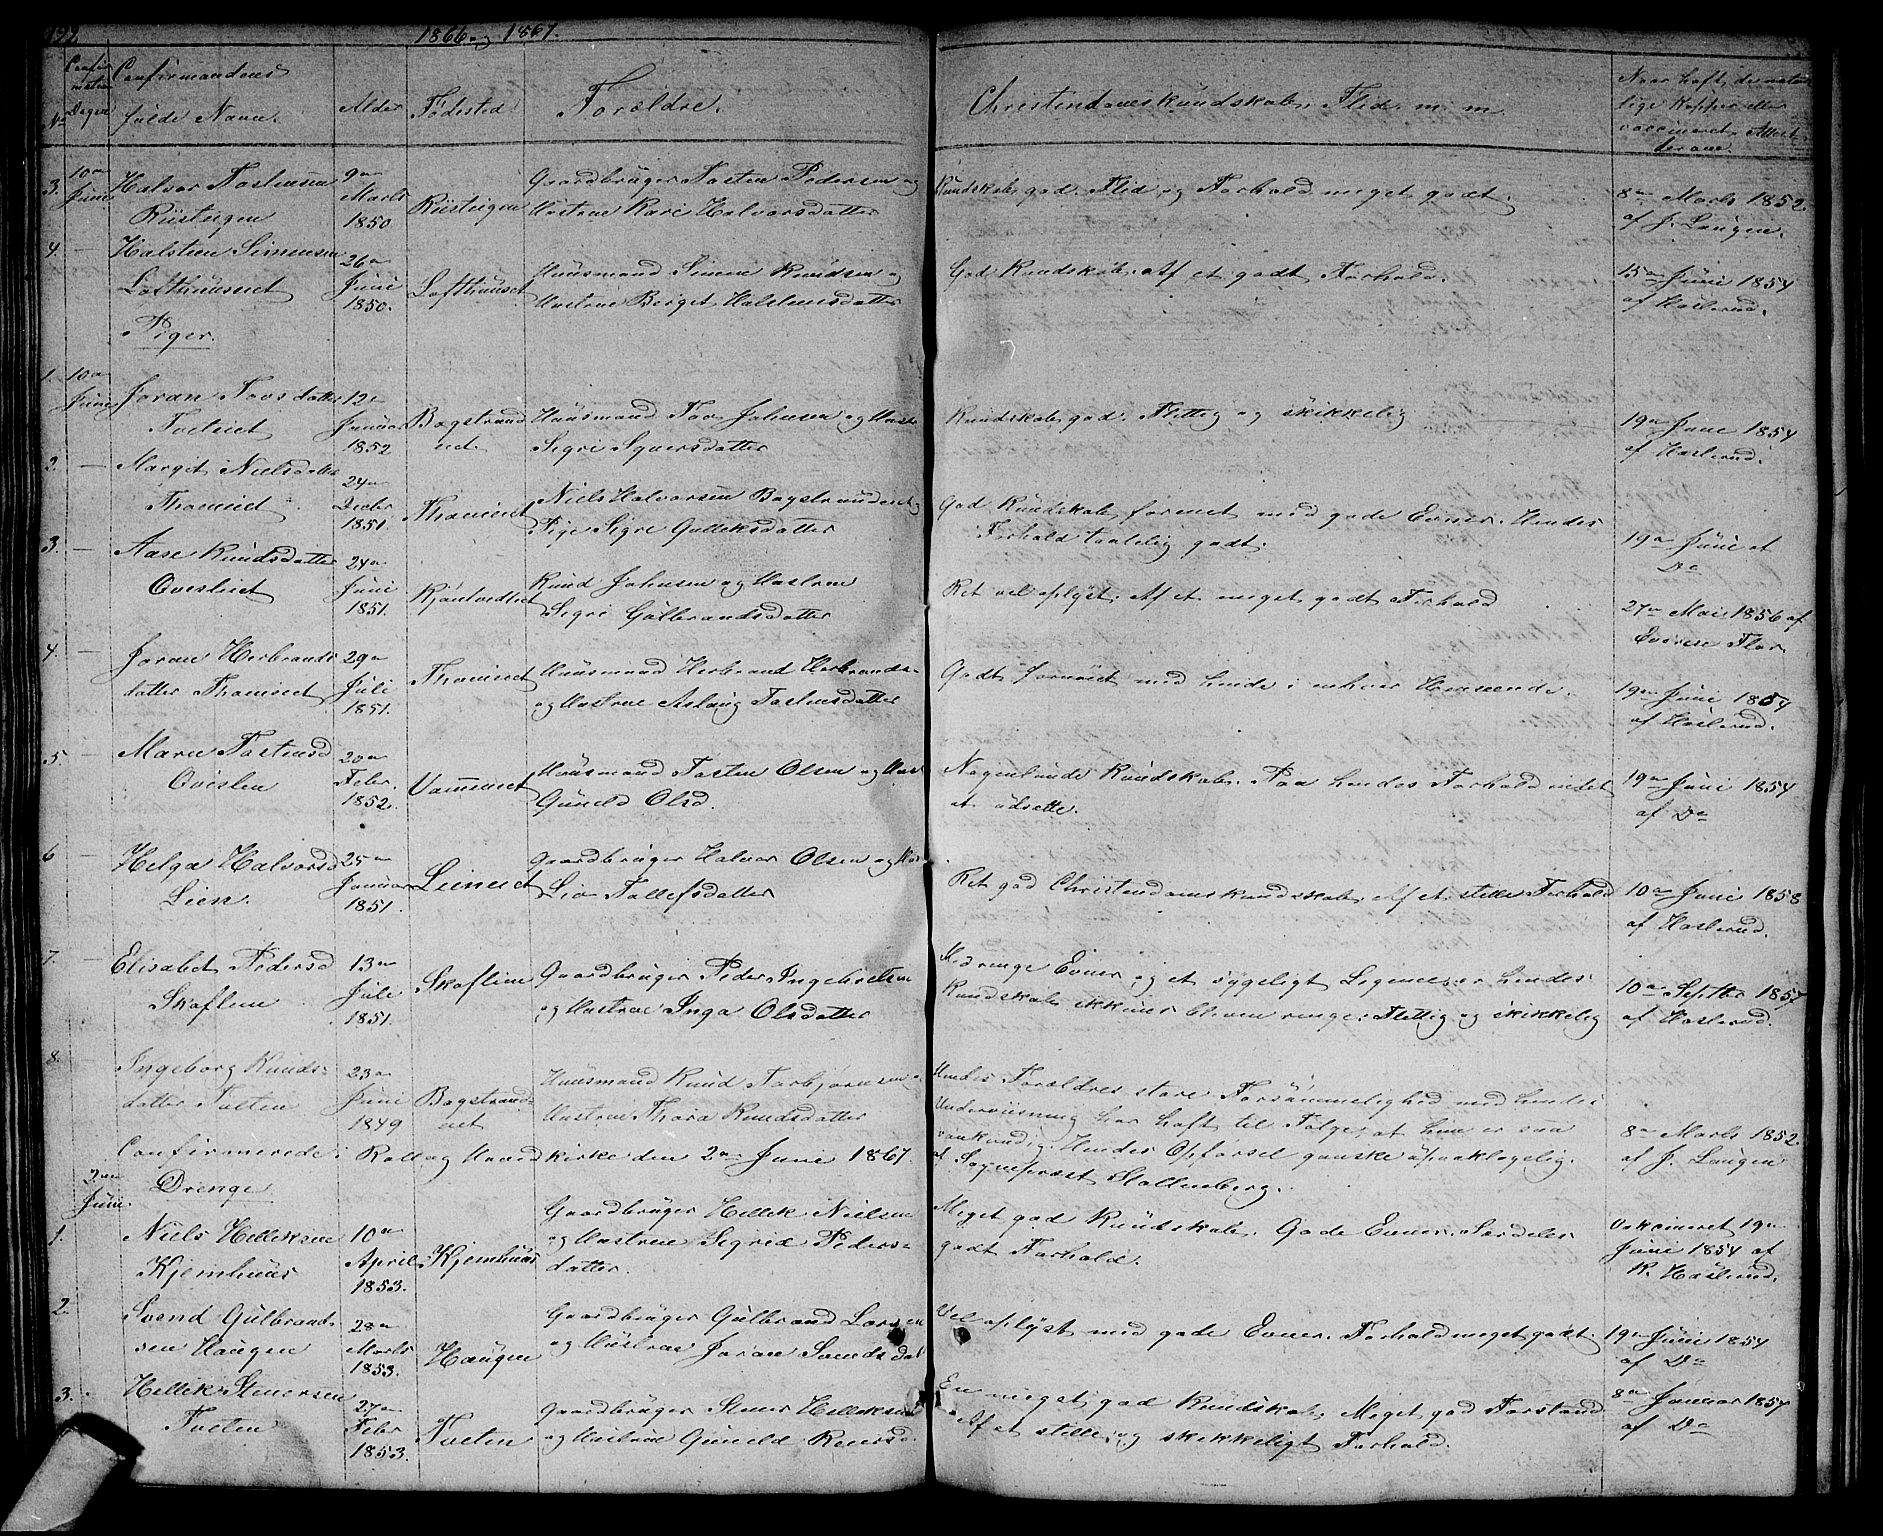 122
1866 og 1867.
No
Confirmations Dagen
Confirmandens
fulde Navn.
Alder
Fødested
Forældre.
Christendomskundskab, Flid m. m.
Naar haft de natur
lige Kopper eller
vaccineret. Attest
derom.
3. 10de Juni
Halvor Tostensen
Riisteigen
9de
Marts
1850
Riisteigen
Gaardbruger Tosten Pedersen og
Hustrue Kari Halvorsdatter
Kundskab god. Flid og Forhold meget godt.
8de Marts 1852
af J. Laugen.
4. —
Halsten Simensen
Lofthuuset
26de
Juni
1850.
Lofthuuset
Huusmand Simen Knudsen og
Hustrue Berget Halstensdatter
God Kundskab. Af et godt Forhold.
15de Juni 1854
af Haslerud.
Piger.
1. 10de Juni
Joran Tovsdatter
Tveteiet
12te
Januar
1852
Bagstrand
eiet.
Huusmand Tov Johnsen og Hustr.
Sigri Sjuersdatter
Kundskab god. Flittig og skikkelig
19de Juni 1854
af Haslerud.
2. —
Margit Nielsdatter
Thomeiet
24de
Decbr
1851.
Thomeiet
Niels Halvorsen Bagstrandeiet og
Pige Sigre Gulleksdatter
God Kundskab, forenet med gode Evner. Hendes
Forhold taalelig godt.
19de Juni af
Do
3. —
Aase Knudsdatter
Qvisleiet
24de
Juni
1851.
Knud Johnsen og Hustrue
Sigri Gulbrandsdatter
Ret vel oplyst. Af et meget godt Forhold
27de Mai 1856 af
4. —
Joran Herbrands
datter Thomeiet
29de
Juli
1851.
Thomeiet
Huusmand Herbrand Herbrands.
og Hustrue Aslaug Tostensdatter
Godt fornøiet med hende i enhver Henseende.
19de Juni 1854
af Haslerud.
5. —
Maren Tostensd
Qvislen
20de
Febr.
1852.
Huusmand Tosten Olsen og Hust
Gunild Olsd.
Nogenlunde Kundskab. Paa hendes Forhold intet
at udsætte.
19de Juni 1854
af Do
6 —
Helga Halvorsd
Lien.
25de
Januar
1851.
Lieneiet
Gaardbruger Halvor Olsen og Hus
Liv Tollefsdatter
Ret god Christendomskundskab. Af et stille Forhold
10de Juni 1858
af Haslerud.
7. —
Elisabet Pedersd
Skaflem
13de
Juli
1851.
Skaflem
Gaardbruger Peder Ingebretsen
og Hustrue Inga Olsdatter
Med ringe Evner og et sygeligt Legeme er hendes
Kundskab ikkuns bleven ringe. Flittig og skikkelig
10de Septbr 1857
af Haslerud.
8. —
Ingeborg Knuds-
datter Tveten
23de
Juni
1849
Bagstrand-
eiet
Huusmand Knud Torbjørnsen og
Hustrue Thora Knudsdatter
Hendes Forældres store Forsømmelighed med hendes
Underviisning har haft til Følge, at hun er saa
vankundig. Hendes Opførsel ganske upaaklagelig.
af Sognepræst Stoltenberg.
8de Marts 1852
af J. Laugen
Confirmerede i Rollag Hovedkirke den 2den Juni 1867.
2den Juni
Drenge
1.
Niels Helleksen
Kjemhuus
10de
April
1853.
Kjemhuus
Gaardbruger Hellek Nielsen
og Hustrue Sigrid Peders-
datter.
Meget god Kundskab. Gode Evner. Særdeles
godt Forhold.
Vakcineret 19de
Juni 1854 af
K. Haslerud.
2.
Svend Gulbrand-
sen Haugen
28de
Marts
1853.
Haugen
Gaardbruger Gulbrand Larsen
og Hustrue Joran Svendsdat
Vel oplyst med gode Evner. Forhold meget godt.
19de Juni 1854
af Do
3.
Hellek Stenersen
Tveten
27de
Febr
1853.
Tveten
Gaardbruger Stener Helleksen
og Hustrue Gunild Reiersd.
En meget god Kundskab. Meget god Forstand.
Af et stille og skikkeligt Forhold.
8de Januar 1854
af Do